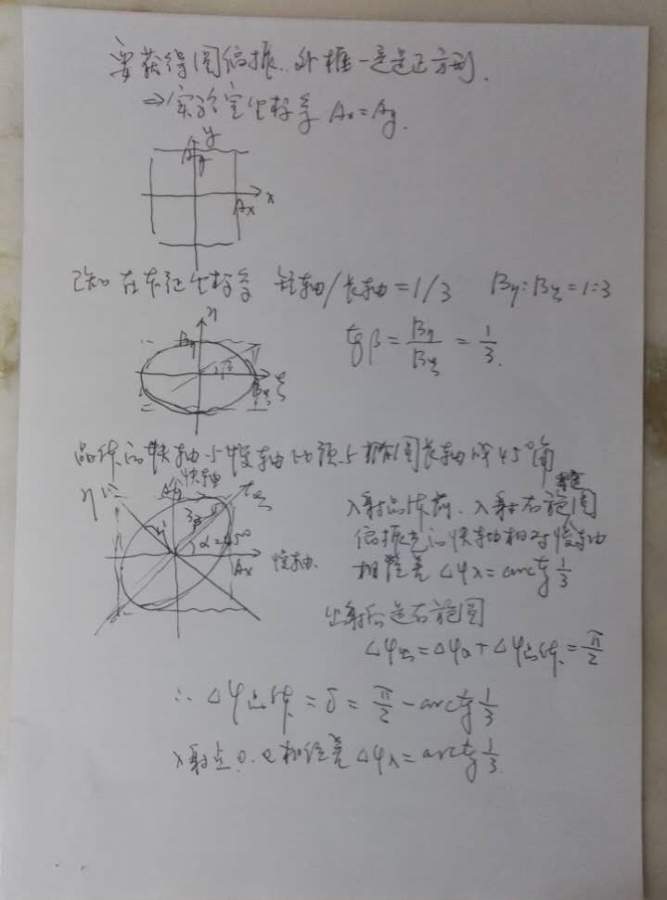 要获得圆偏振,外框一定是正方形.
⇒实验室坐标系 Ax=Ay.
y
Ay
Ax x
已知在本征坐标系 短轴/长轴=1/3 Bη:Bξ=1:3
η
Bη
tgβ = Bη/Bξ = 1/3.
β
Bξ ξ
晶体的快轴与慢轴必须与椭圆长轴成45°角
η 快轴 ξ
Ay
α=45°
Ax 慢轴
入射晶体前、入射右旋椭圆
偏振光的快轴相对慢轴
相位差 Δφ入=arctg 1/3
出射后是右旋圆
Δφ出=Δφ入+Δφ晶体=π/2
∴ Δφ晶体=δ=π/2-arctg 1/3
入射点o.e相位差 Δφ入=arctg 1/3.